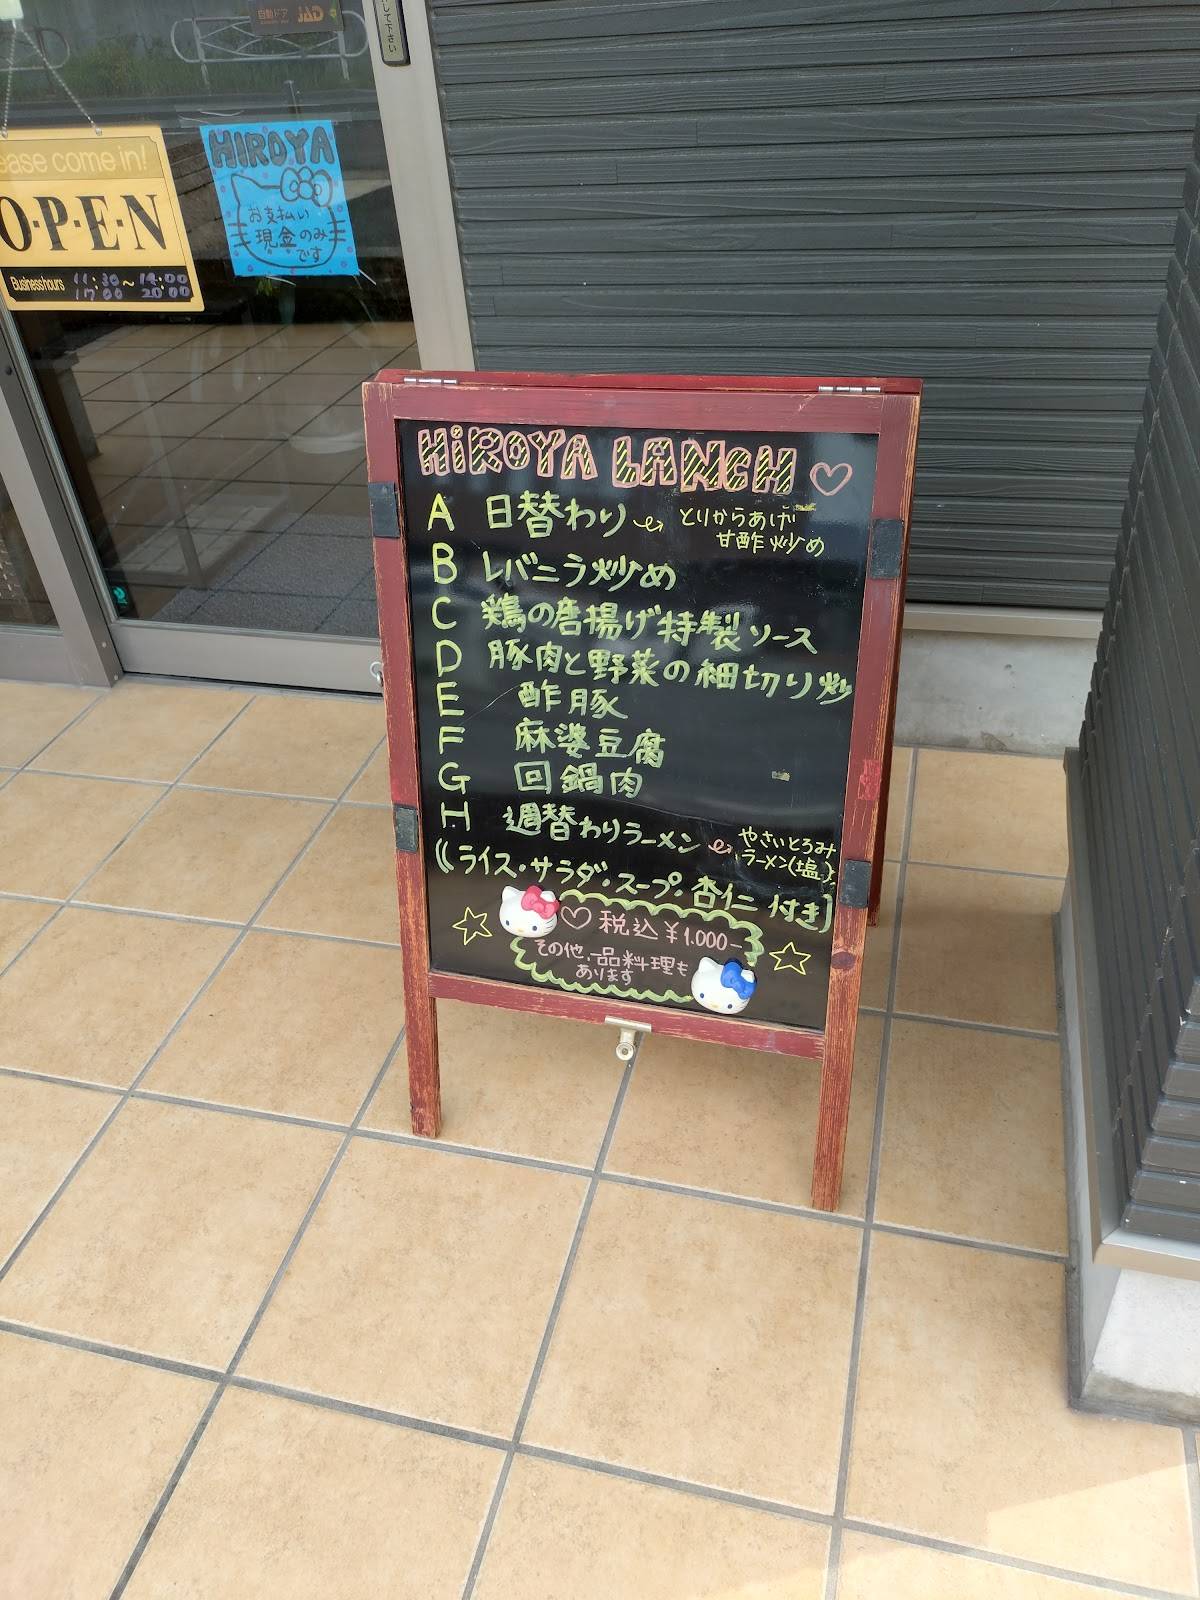 自動ドア JAD
して下さい
ease come in!
O·P·E·N
Business hours 11:30～14:00
17:00 20:00
HIROYA
お支払い
現金のみ
です
HiROYA LANCH ♡
A 日替わり とりからあげ
甘酢炒め
B レバニラ炒め
C 鶏の唐揚げ特製ソース
D 豚肉と野菜の細切り炒
E 酢豚
F 麻婆豆腐
G 回鍋肉
H 週替わりラーメン やさいとろみ
ラーメン(塩)
(ライス・サラダ・スープ・杏仁 付き)
♡ 税込 ¥1.000-
その他.一品料理も
あります